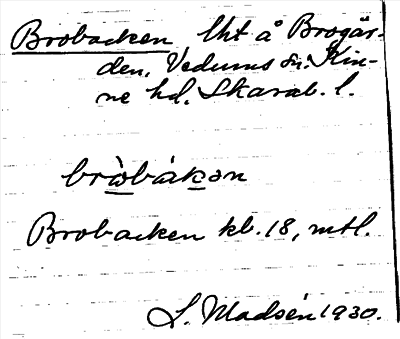 Brobacken lht å Brogår-
den, Vedums sn. Kin-
ne hd. Skarab. l.
bròbákən
Brobacken kb. 18, mtl.
L. Madsén 1930.